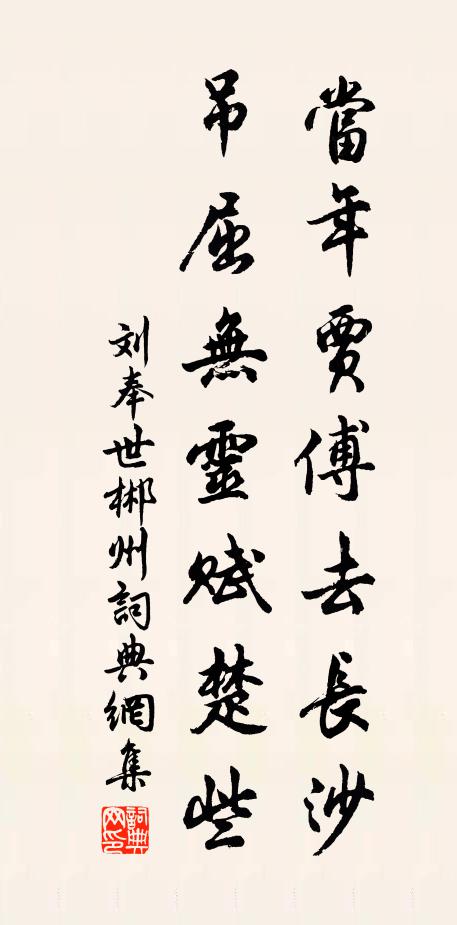 當年賈傅去長沙
吊屈無靈賦楚些
刘奉世郴州詞典網集
詞典网印